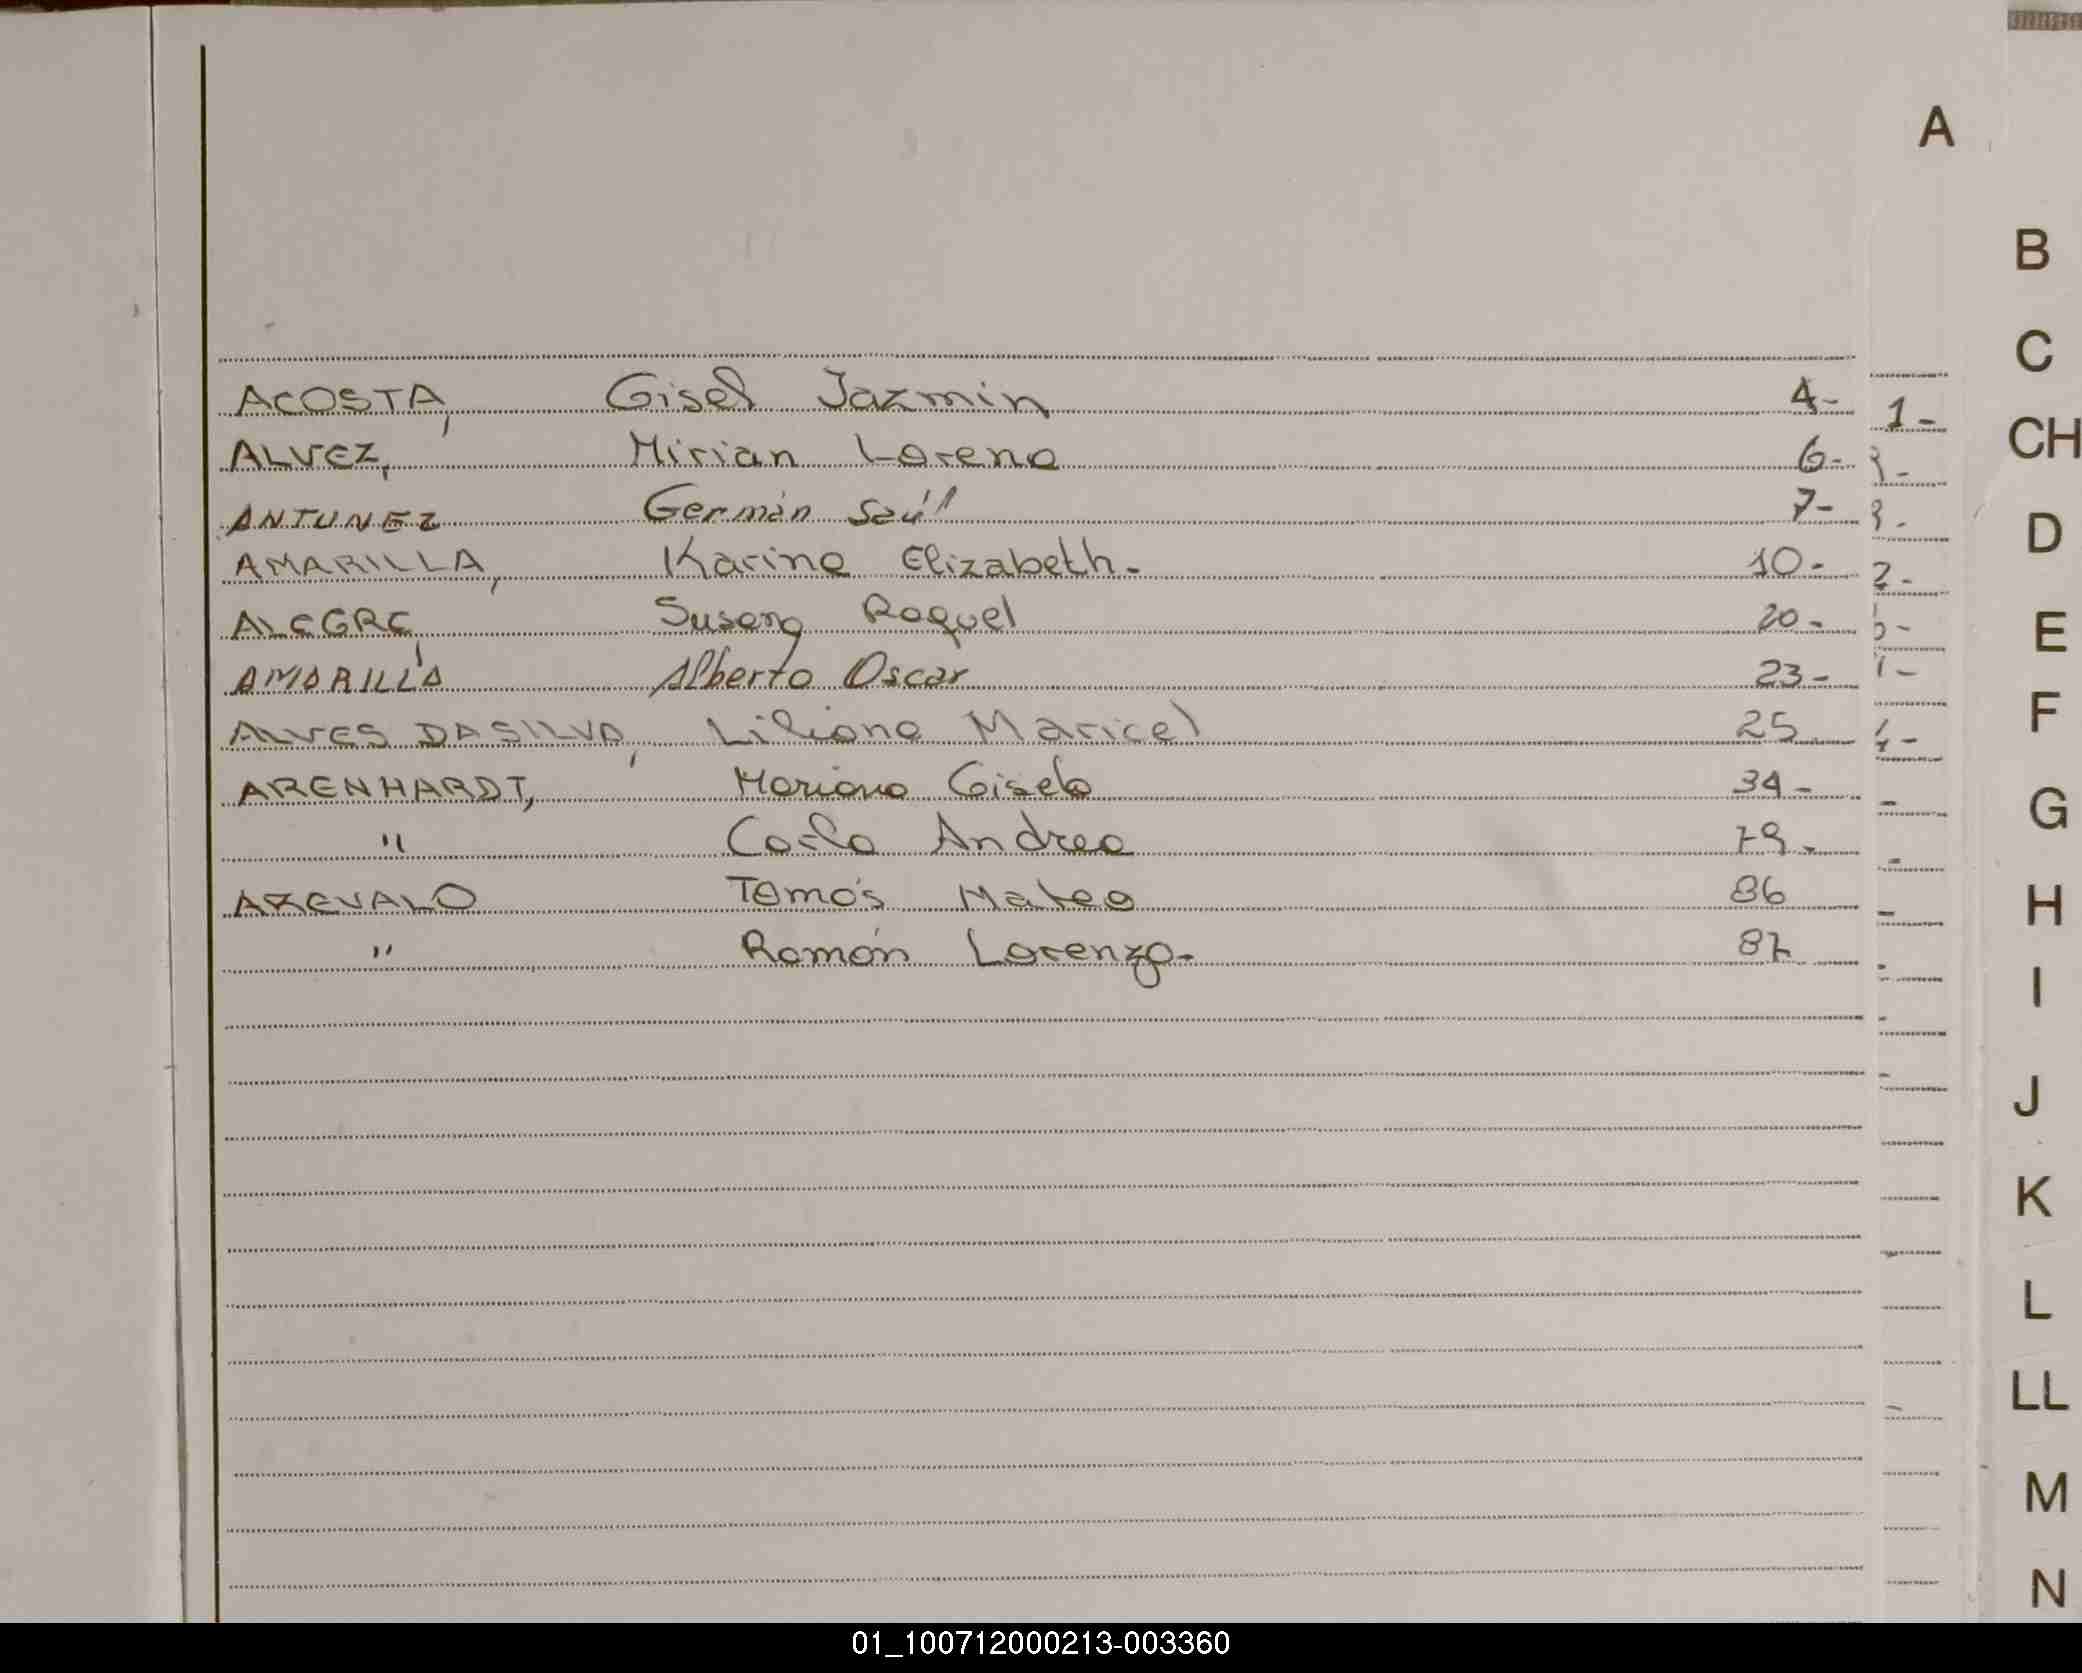 A
B
C
ACOSTA, Gisel Jazmin 4- 1-
CH
ALVEZ, Mirian Lorena 6-
ANTUNEZ Germán Saúl 7-
D
AMARILLA, Karina Elizabeth. 10- 2-
ALEGRE, Susana Raquel 20-
E
AMARILLA Alberto Oscar 23-
F
ALVES DASILVA, Liliana Maricel 25
ARENHARDT, Mariana Gisela 34-
G
" Carla Andrea 79-
AREVALO Tomás Mateo 86
H
" Ramón Lorenzo- 87
I
J
K
L
LL
M
N
01_100712000213-003360